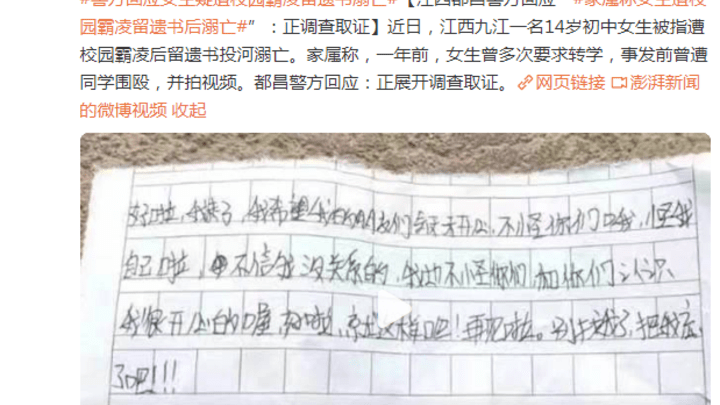 #警方回应女生疑遭校园霸凌留遗书溺亡#【江西都昌警方回应“#家属称女生遭校
园霸凌留遗书后溺亡#”：正调查取证】近日，江西九江一名14岁初中女生被指遭
校园霸凌后留遗书投河溺亡。家属称，一年前，女生曾多次要求转学，事发前曾遭
同学围殴，并拍视频。都昌警方回应：正展开调查取证。网页链接 澎湃新闻
的微博视频 收起
好啦，我走了，我希望我的们每天开心，不怪你们我，怪我
自己啦，不信我没关系的，我也不怪你们，和你们认识
我很开心的喔，好啦，就这样吧！再见啦。别找我了，把我忘
了吧!!!